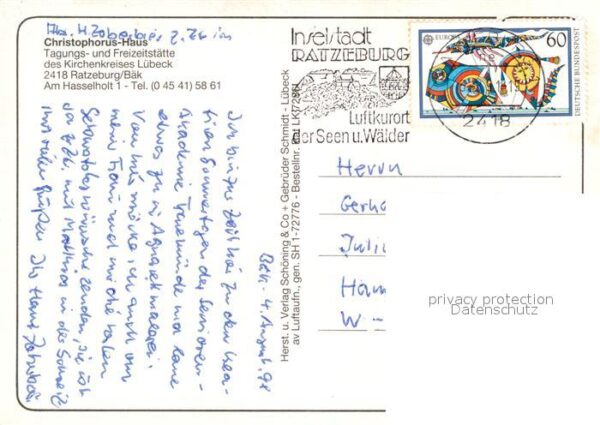 Abs. H. Zoberbier z. Zt. im
Christophorus-Haus
Tagungs- und Freizeitstätte
des Kirchenkreises Lübeck
2418 Ratzeburg/Bäk
Am Hasselholt 1 - Tel. (0 45 41) 58 61
Inselstadt
RATZEBURG
Luftkurort
der Seen u. Wälder
EUROPA
60
DEUTSCHE BUNDESPOST
2418
Bäk, 4. August 91
Ich bin zur Zeit hier zu den Krea-
tiven Sommertagen der Senioren-
Akademie Travemünde und lerne
etwas zu Aquarellmalerei.
Von hier möchte ich auch von
meiner Frau und mir die
Geburtstagswünsche senden, sie ist
da z. Zt. mit Matthias in der Schweiz
Mit vielen Grüßen Ihr Hans Zoberbier
Herst. u. Verlag Schöning & Co + Gebrüder Schmidt - Lübeck
av Luftaufn., gen. SH 1-72776 - Bestellnr.
Herrn
Gerha
Juli
Ham
W -
privacy protection
Datenschutz